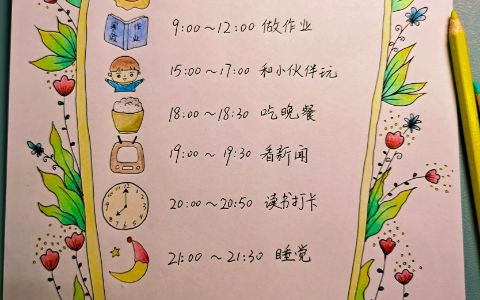 9:00～12:00 做作业
15:00～17:00 和小伙伴玩
18:00～18:30 吃晚餐
19:00～19:30 看新闻
20:00～20:50 读书打卡
21:00～21:30 睡觉